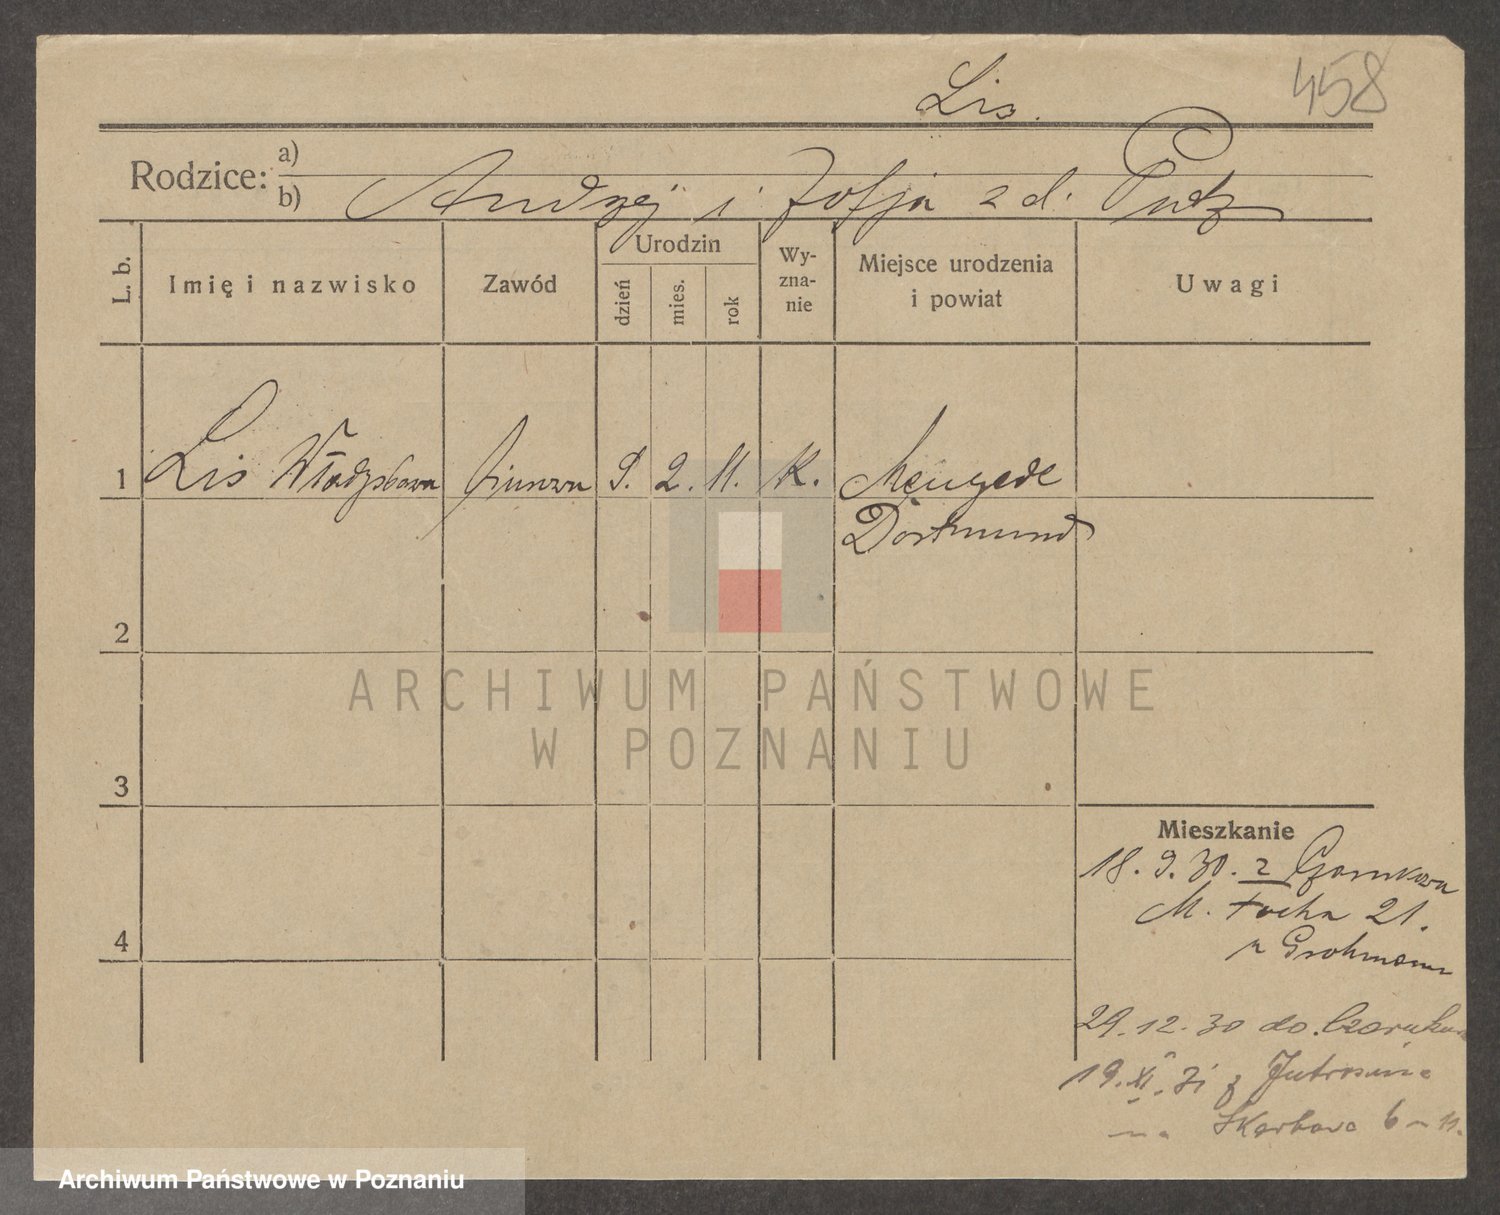 458
Lis.
Rodzice: a)
b) Andrzej i Zofja z d. Putz
L. b.
Imię i nazwisko
Zawód
Urodzin
dzień
mies.
rok
Wy-
zna-
nie
Miejsce urodzenia
i powiat
Uwagi
1 Lis Władysława 9. 2. 11. K. Mengede
Dortmund
2
ARCHIWUM PAŃSTWOWE
W POZNANIU
3
Mieszkanie
18. 9. 30. z Czarnkowa
M. Focha 21.
4
u Grohmann
29. 12. 30 do Czarnkowa
19. XI. 31 z Jutrosina
na Skarbowa 6
Archiwum Państwowe w Poznaniu